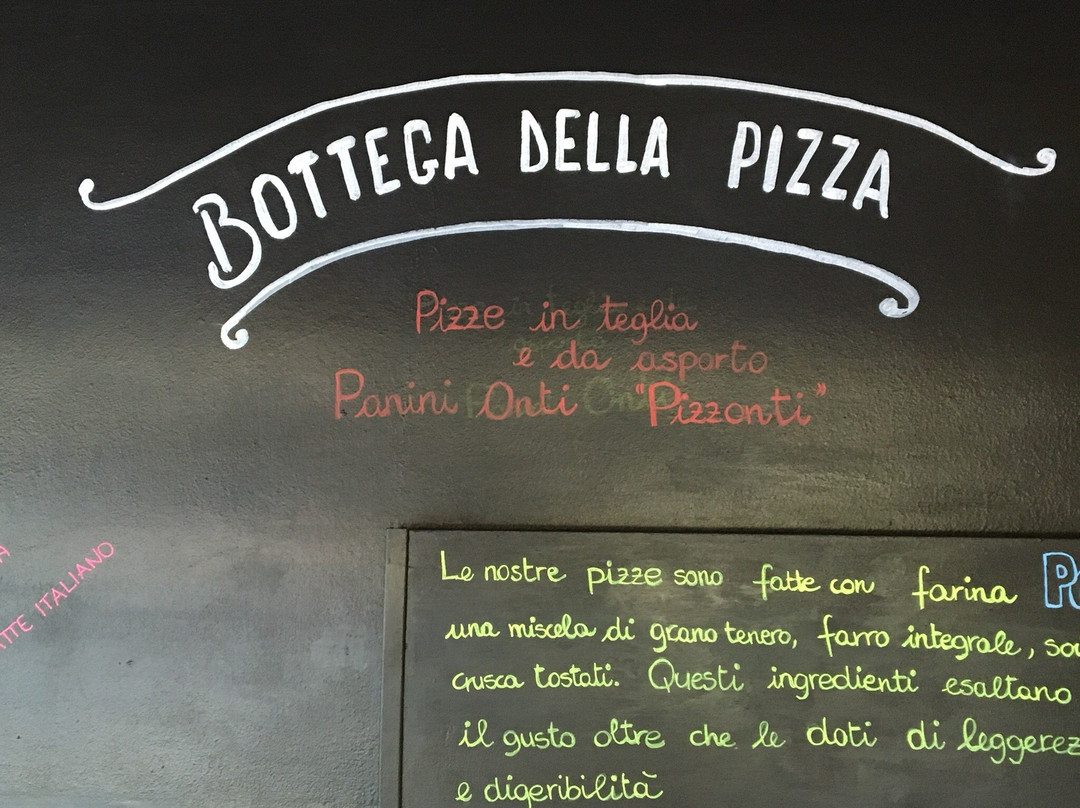 BOTTEGA DELLA PIZZA
Pizze in teglia
e da asporto
Panini Onti "Pizzonti"
ITALIANO
Le nostre pizze sono fatte con farina
una miscela di grano tenero, farro integrale,
crusca tostati. Questi ingredienti esaltano
il gusto oltre che le doti di
e digeribilità